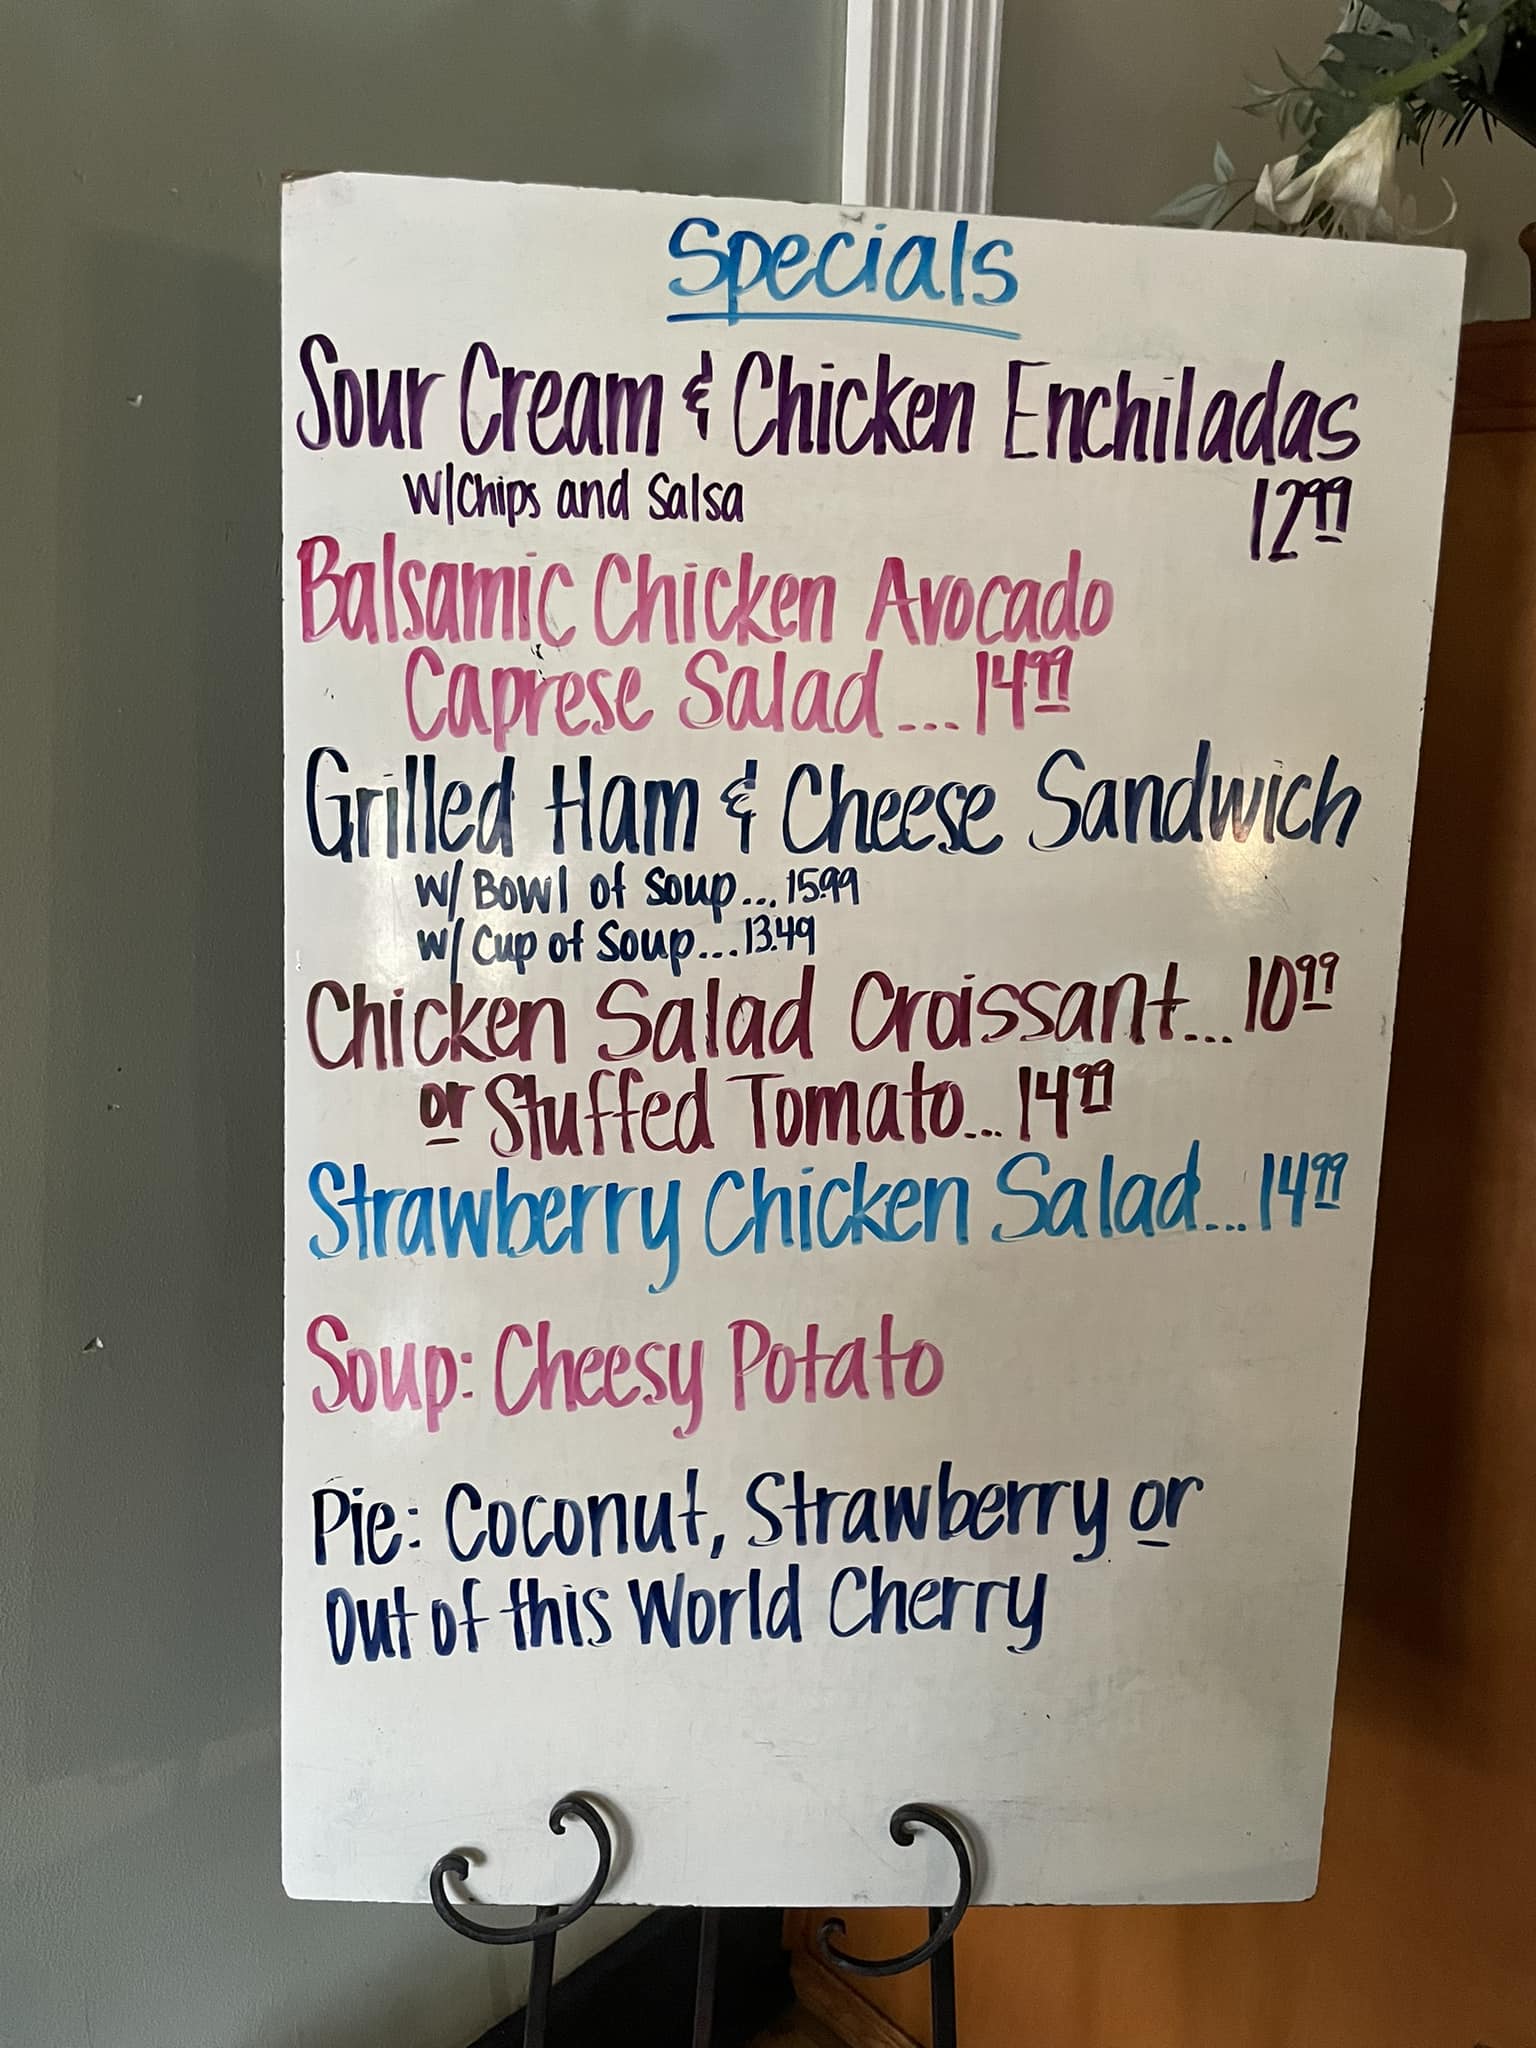 Specials
Sour Cream & Chicken Enchiladas
w/Chips and Salsa 12.99
Balsamic Chicken Avocado
Caprese Salad... 14.99
Grilled Ham & Cheese Sandwich
w/ Bowl of Soup... 15.99
w/ Cup of Soup... 13.49
Chicken Salad Croissant... 10.99
or Stuffed Tomato... 14.99
Strawberry Chicken Salad... 14.99
Soup: Cheesy Potato
Pie: Coconut, Strawberry or
Out of this World Cherry